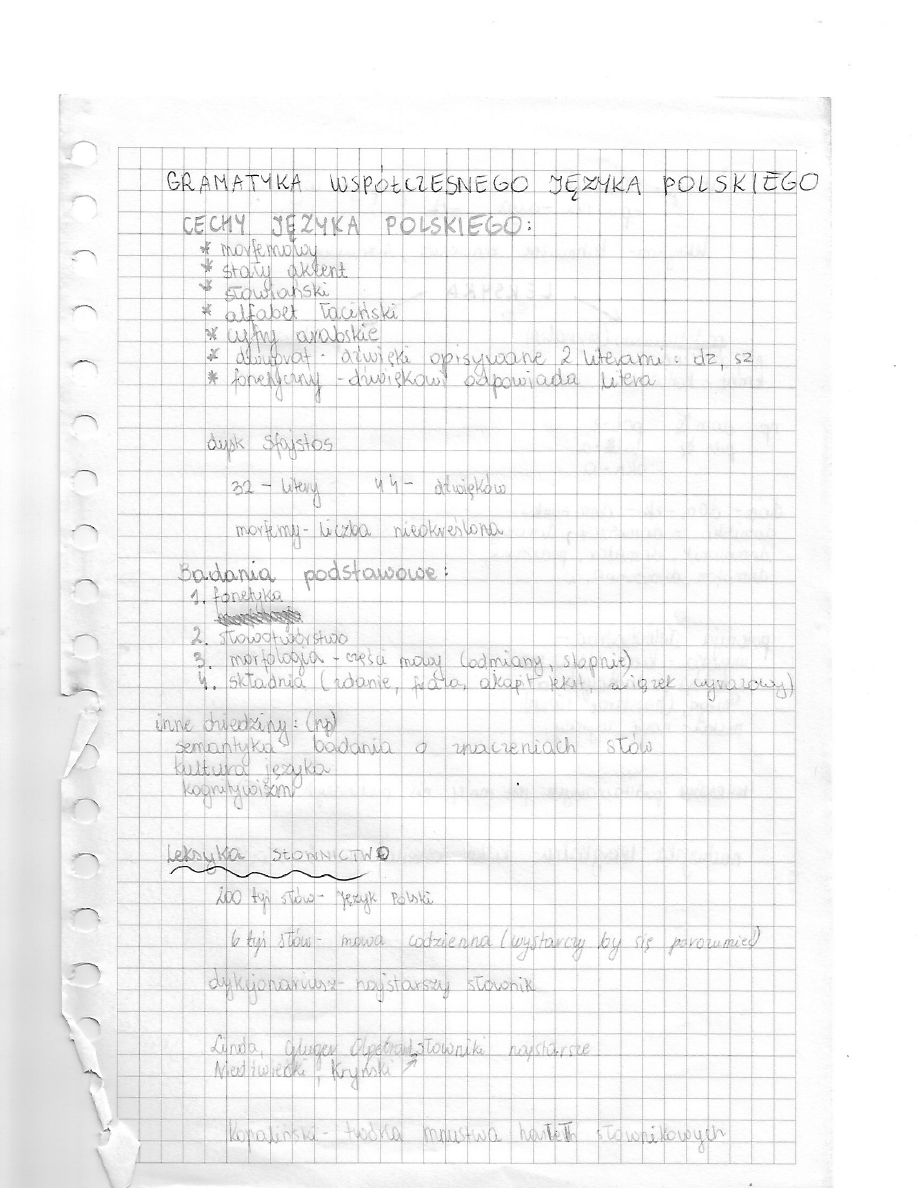 GRAMATYKA WSPÓŁCZESNEGO JĘZYKA POLSKIEGO
CECHY JĘZYKA POLSKIEGO:
* morfemowy
* stały akcent
* słowiański
* alfabet łaciński
* cyfry arabskie
* dwubrat - dźwięki opisywane 2 literami: dz, sz
* fonetyczny - dźwiękowi odpowiada litera
dysk Sfajstos
32 - litery 44 - dźwięków
morfemy - liczba nieokreślona
Badania podstawowe:
1. fonetyka
2. słowotwórstwo
3. morfologia - części mowy (odmiany, stopnie)
4. składnia (zdanie, fraza, akapit, tekst, związek wyrazowy)
inne dziedziny: (np)
semantyka - badania o znaczeniach słów
kultura języka
kognitywizm
Leksyka SŁOWNICTWO
200 tyś słów - Język Polski
6 tyś słów - mowa codzienna (wystarczy by się porozumieć)
dykcjonariusz - najstarszy słownik
Lynda, słowniki najstarsze
Niedźwiecki, Kryński
Kopaliński - mnustwa haseł słownikowych